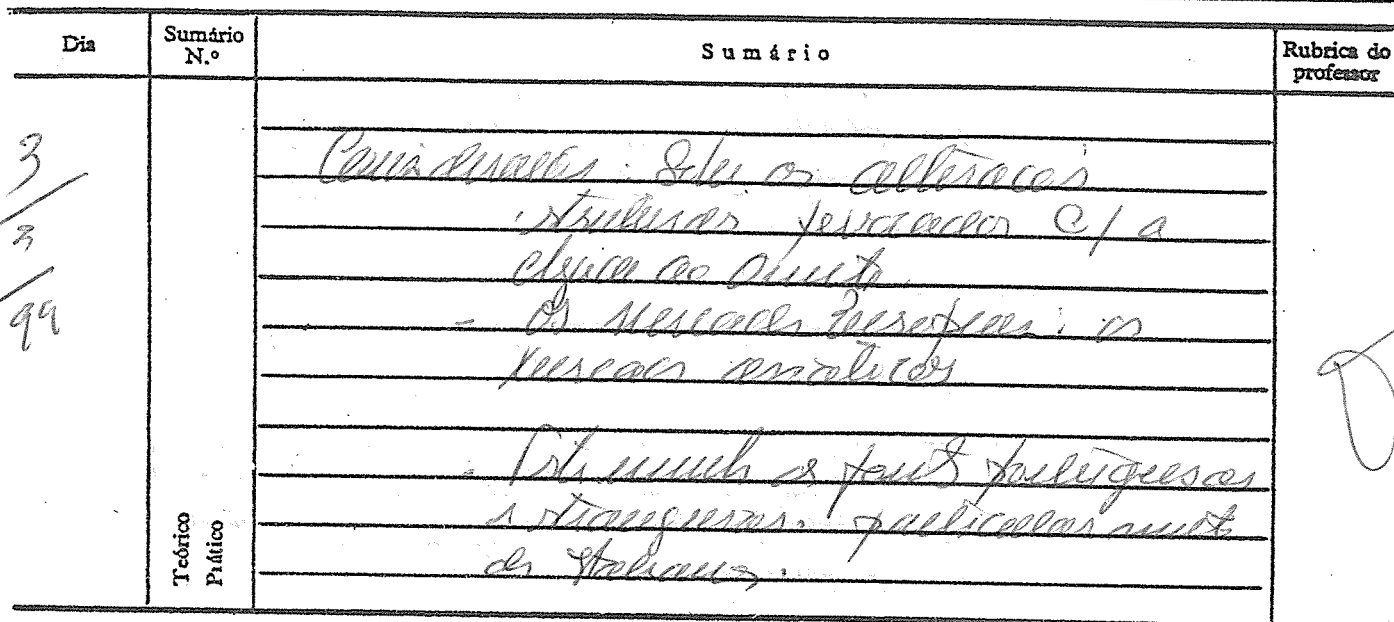 Dia
Sumário N.º
Sumário
Rubrica do professor
3/2/99
Considerações. Sobre as alterações
estruturais provocadas c/ a
chegada ao Oriente.
- Os mercados Europeus: os
mercados asiáticos
- Testemunhos de fontes portuguesas
e estrangeiras. particularmente
de italianos.
Teórico
Prático